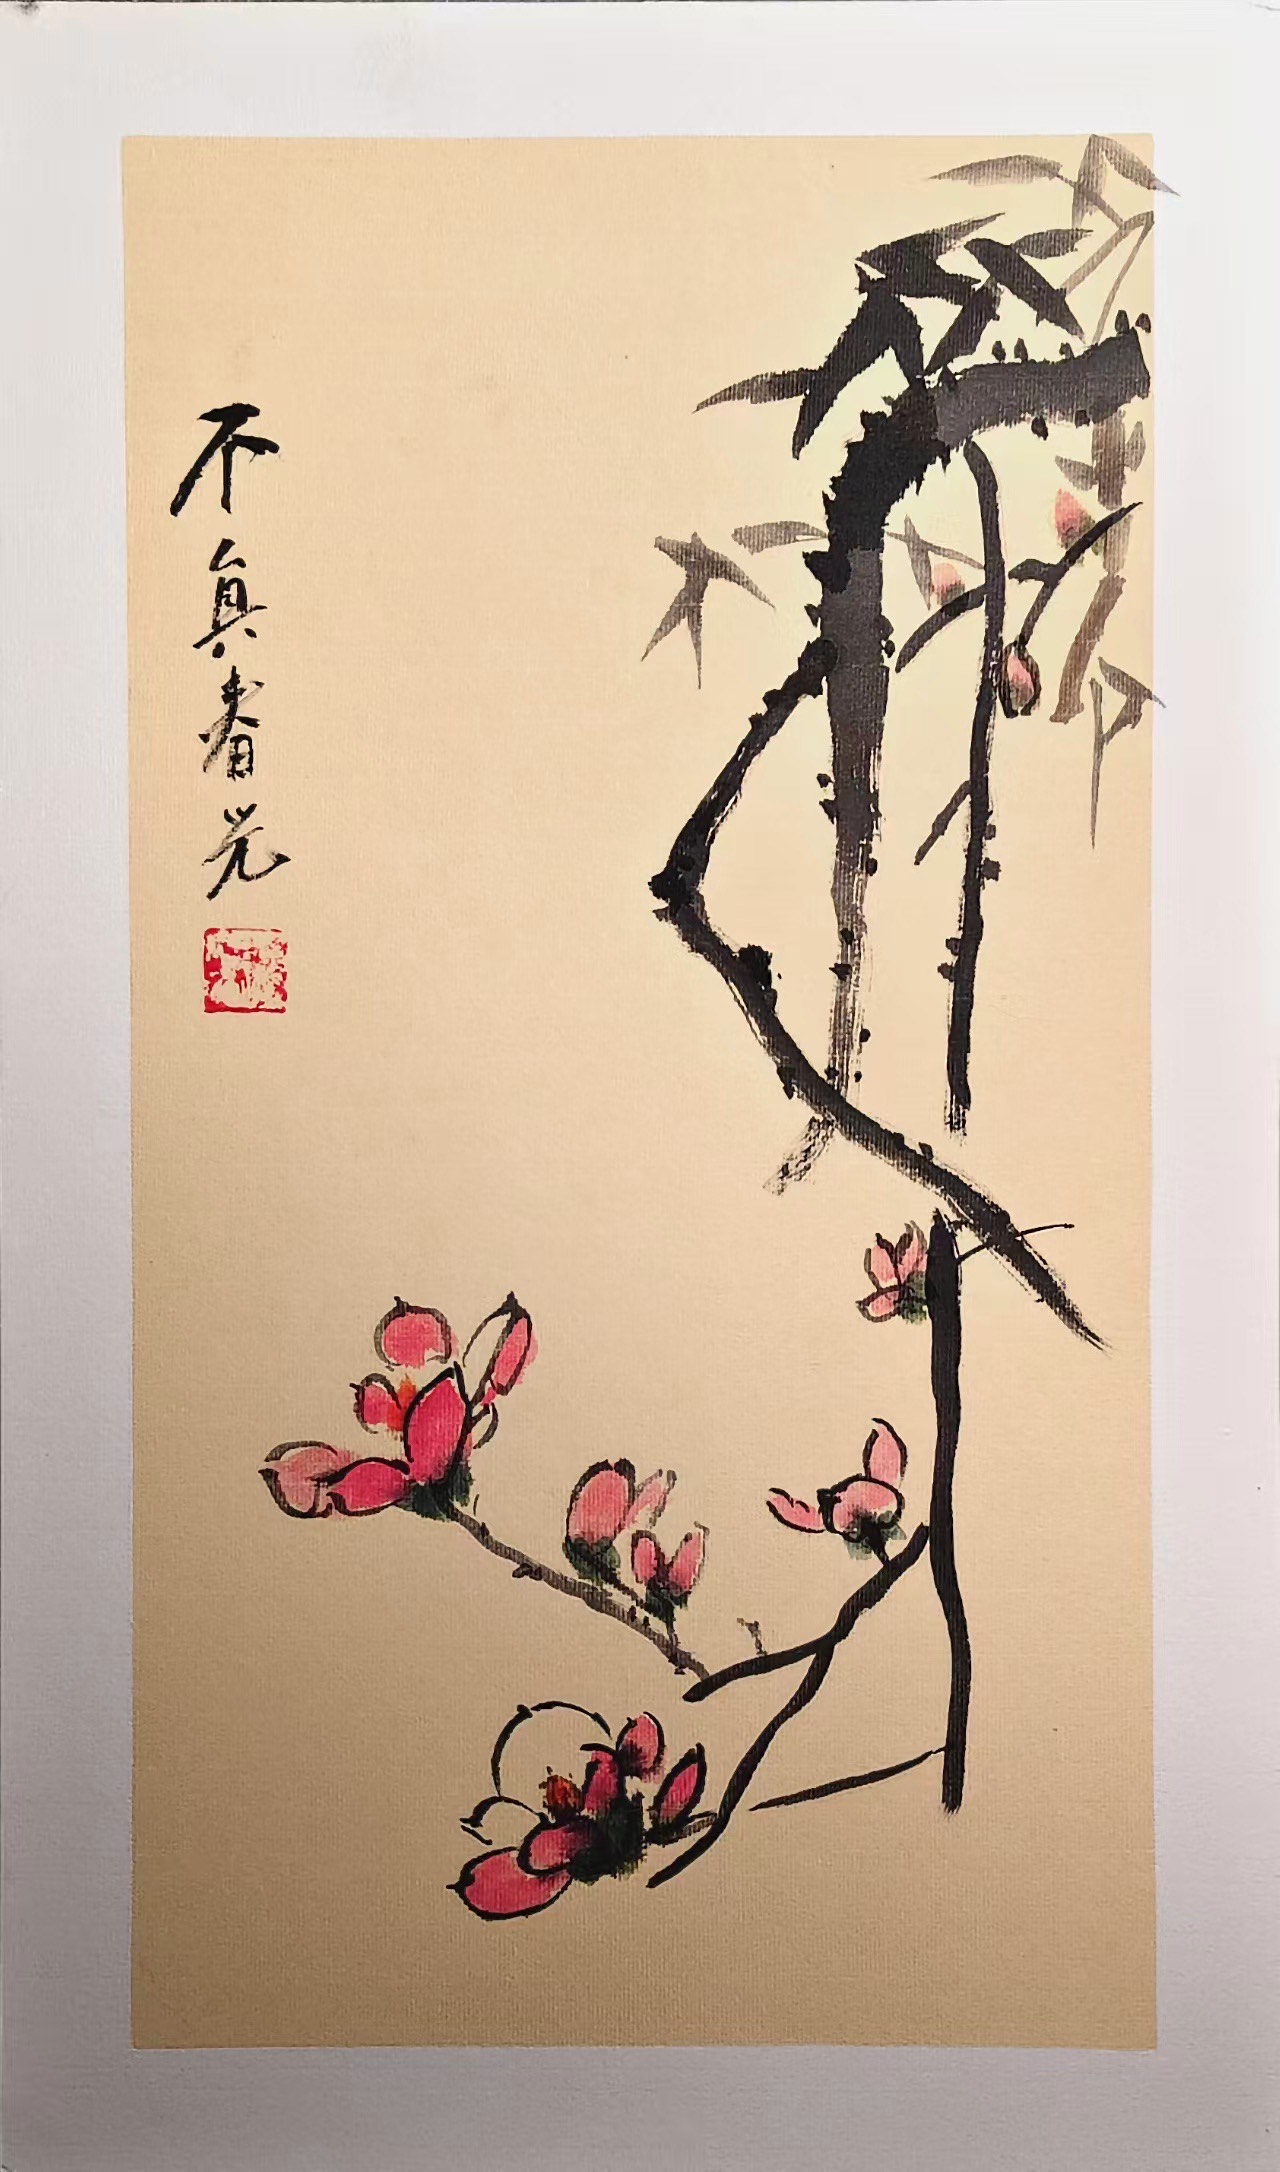 不負春光